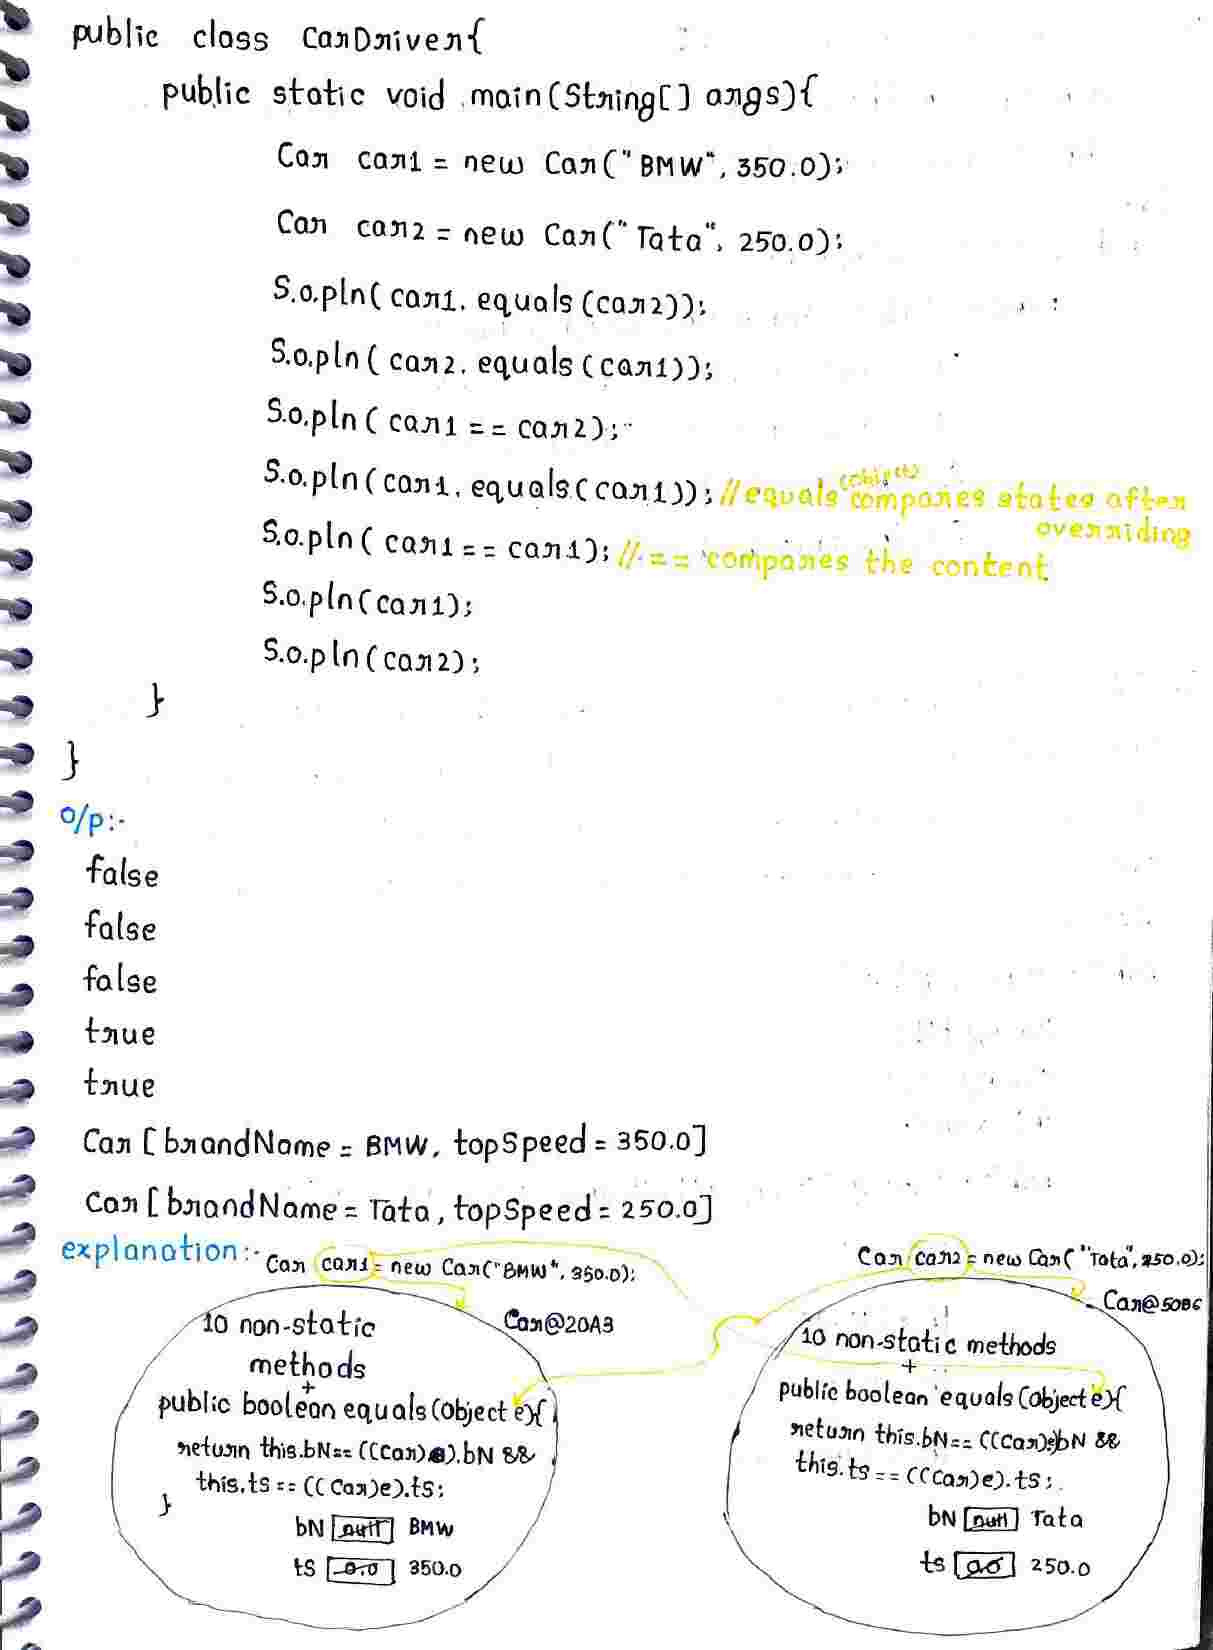 public class CarDriver{
public static void main(String[] args){
Car car1 = new Car("BMW", 350.0);
Car car2 = new Car("Tata", 250.0);
S.o.pln( car1. equals (car2));
S.o.pln( car2. equals (car1));
S.o.pln( car1 == car2);
S.o.pln( car1. equals (car1)); //equals (object) compares states after overriding
S.o.pln( car1 == car1); // == compares the content
S.o.pln(car1);
S.o.pln(car2);
}
}
o/p:-
false
false
false
true
true
Car [brandName = BMW, topSpeed = 350.0]
Car [brandName = Tata, topSpeed = 250.0]
explanation:-
Car car1 = new Car("BMW", 350.0);
Car@20A3
10 non-static
methods
+
public boolean equals(Object e){
return this.bN== ((Car)e).bN &&
this.ts == ((Car)e).ts;
}
bN null BMW
ts 0.0 350.0
Car car2 = new Car("Tata", 250.0);
Car@50BC
10 non-static methods
+
public boolean equals (Object e){
return this.bN== ((Car)e)bN &&
this.ts == ((Car)e).ts;
bN null Tata
ts 0.0 250.0